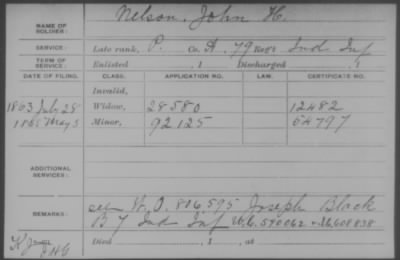 NAME OF SOLDIER: Nelson, John H.
SERVICE: Late rank, P. Co. A, 79 Reg't Ind Inf
TERM OF SERVICE: Enlisted , 1 Discharged , 1
DATE OF FILING. CLASS. APPLICATION NO. LAW. CERTIFICATE NO.
Invalid,
1863 July 28 Widow, 28580 12482
1865 May 5 Minor, 92125 64797
ADDITIONAL SERVICES:
REMARKS: see W.O. 806,595 Joseph Black
B 7 Ind Inf W.C. 590062 608838
Died , 1 , at